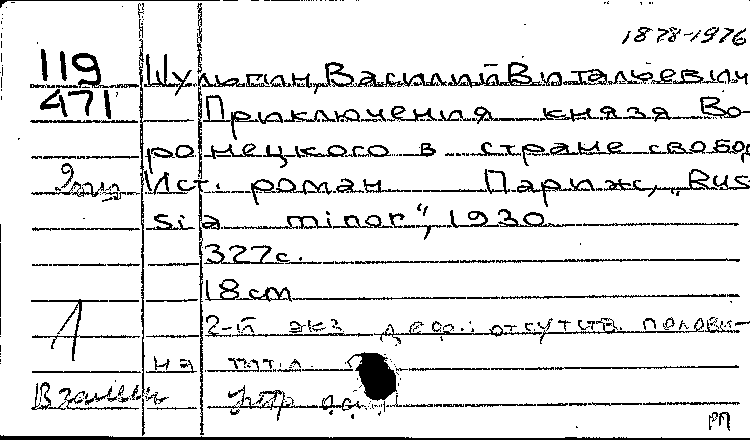 1878-1976
119 Шульгин, Василий Витальевич
471 Приключения князя Во-
ронецкого в стране свобод
Ист. роман Париж, „Rus
sia minor“, 1930
327с.
18 cm
1 2-й экз деф.: отсутств. полови-
на тит. л.
Взамен
РП